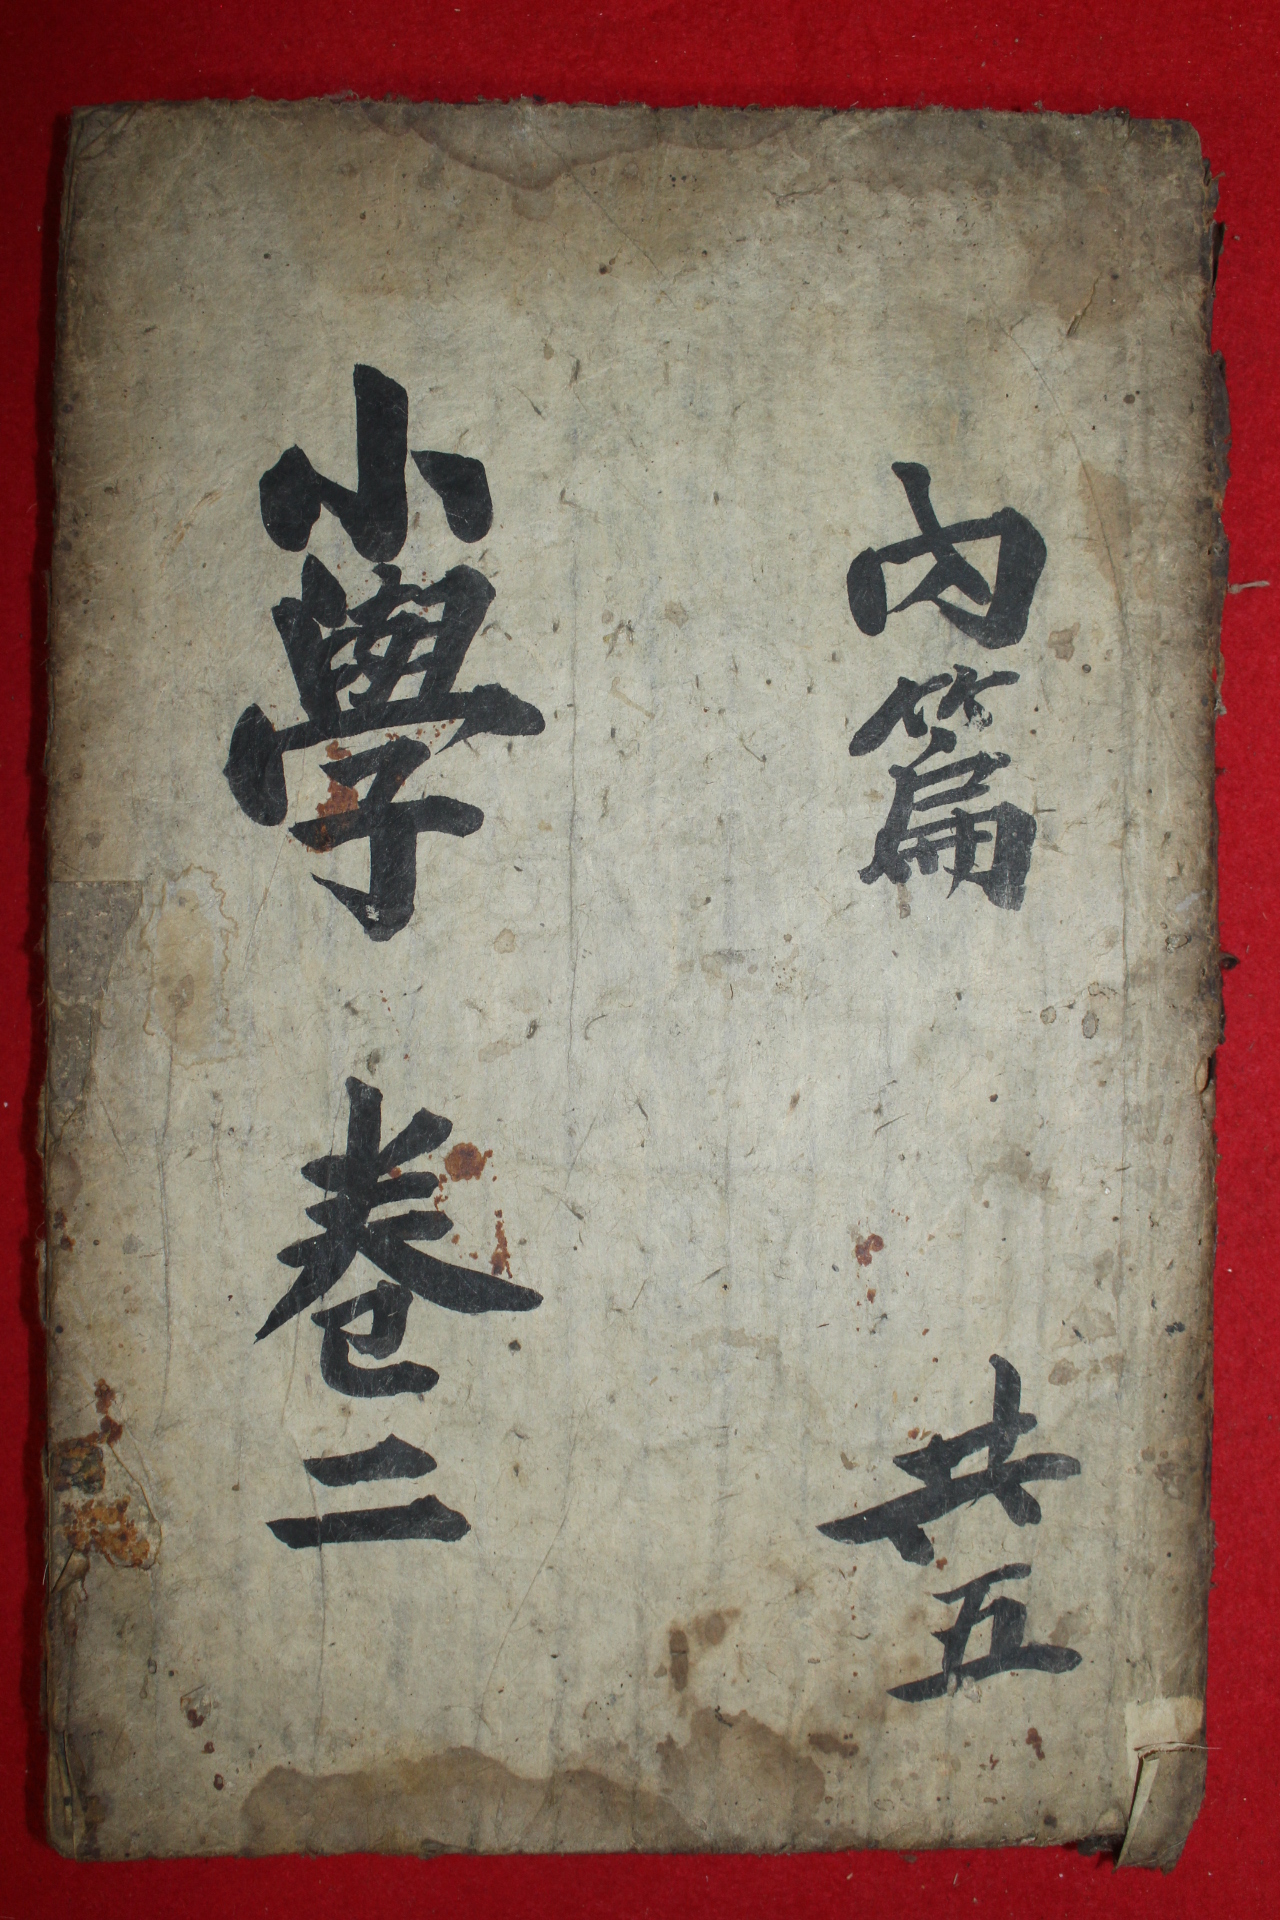 內篇 共五
小學 卷二